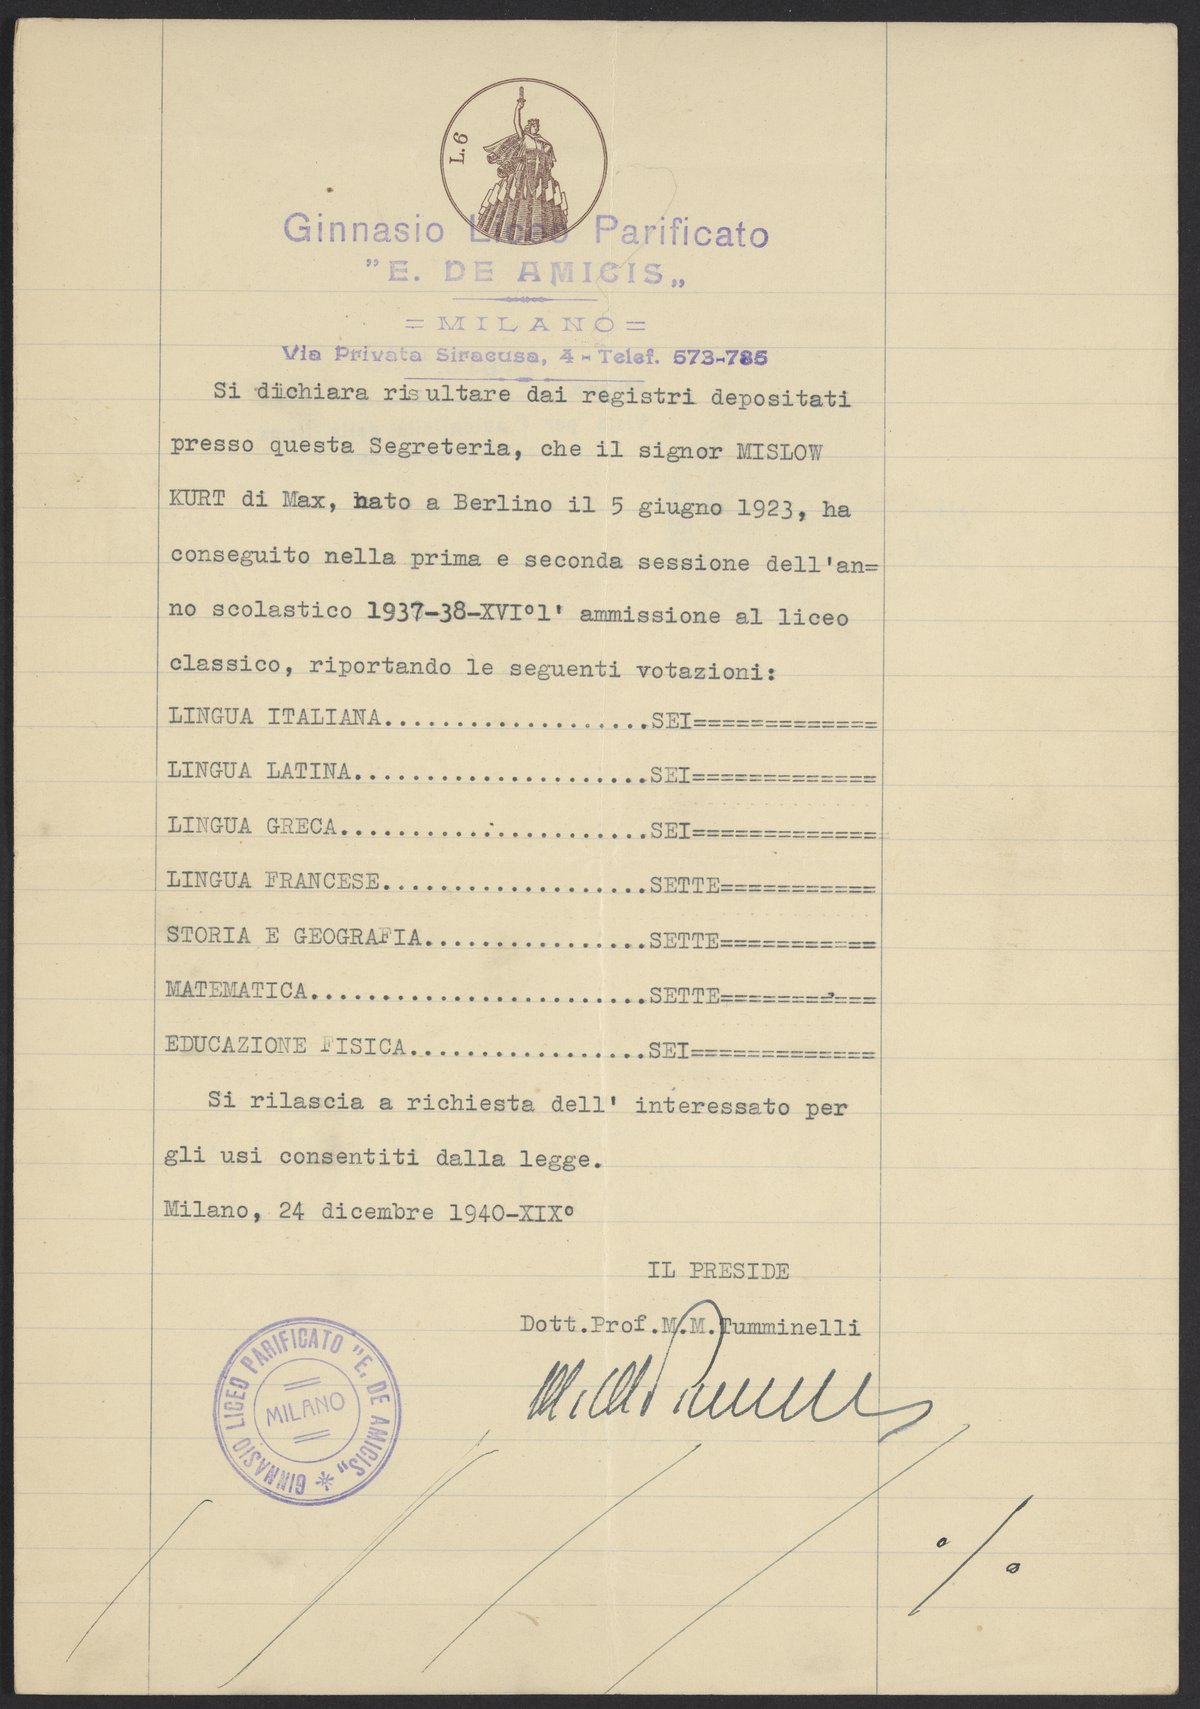 L.6
Ginnasio Liceo Parificato
"E. DE AMICIS„
= MILANO =
Via Privata Siracusa, 4 - Telef. 573-785
Si dichiara risultare dai registri depositati
presso questa Segreteria, che il signor MISLOW
KURT di Max, nato a Berlino il 5 giugno 1923, ha
conseguito nella prima e seconda sessione dell'an=
no scolastico 1937-38-XVI°l' ammissione al liceo
classico, riportando le seguenti votazioni:
LINGUA ITALIANA...................SEI=============
LINGUA LATINA.....................SEI=============
LINGUA GRECA......................SEI=============
LINGUA FRANCESE...................SETTE===========
STORIA E GEOGRAFIA................SETTE===========
MATEMATICA........................SETTE===========
EDUCAZIONE FISICA.................SEI=============
Si rilascia a richiesta dell' interessato per
gli usi consentiti dalla legge.
Milano, 24 dicembre 1940-XIX°
IL PRESIDE
Dott.Prof.M.M.Tumminelli
GINNASIO LICEO PARIFICATO "E. DE AMICIS„ *
MILANO